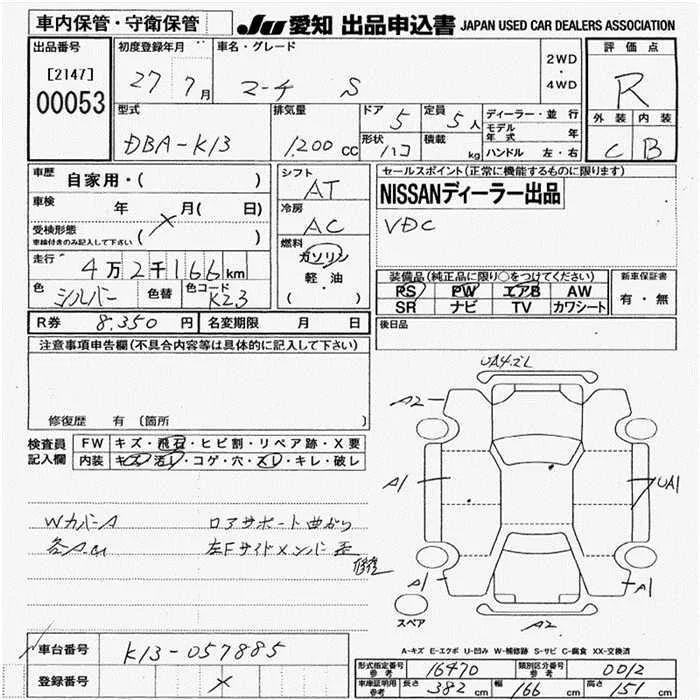 車内保管・守衛保管
JU 愛知 出品申込書 JAPAN USED CAR DEALERS ASSOCIATION
出品番号
[2147]
00053
初度登録年月
27年 7月
車名・グレード
マーチ S
2WD
・
4WD
評価点
R
外装 内装
C B
型式
DBA-K13
排気量
1200 cc
ドア 5
形状 ハコ
定員 5人
積載 kg
ディーラー・並行
モデル年式 年
ハンドル 左・右
車歴 自家用・( )
車検 年 月( 日)
受検形態
車検付きのみ記入して下さい ( )
走行 4万2千166km
色 シルバー 色替 色コード K23
シフト AT
冷房 AC
燃料
ガソリン
軽・油
( )
セールスポイント(正常に機能するものに限ります)
NISSANディーラー出品
VDC
装備品(純正品に限り○をつけてください)
PS PW エアB AW
SR ナビ TV カワシート
新車保証書
有・無
R券 8,350 円 名変期限 月 日
後日品
注意事項申告欄(不具合内容等は具体的に記入して下さい)
修復歴 有 〔箇所 〕
検査員
記入欄
FW キズ・飛石・ヒビ割・リペア跡・X要
内装 キズ・汚レ・コゲ・穴・スレ・キレ・破レ
WカバーA ロアサポート曲がり
左Fサイドメンバー歪
修復
A2
A1
UA1
A1
A1
A2
スペア
A-キズ E-エクボ U-凹み W-補修跡 S-サビ C-腐食 XX-交換済
車台番号 K13-057885
登録番号 X
形式指定番号 参考 16470 類別区分番号 参考 0012
車庫証明用 参考 長さ 382 cm 幅 166 cm 高さ 151 cm